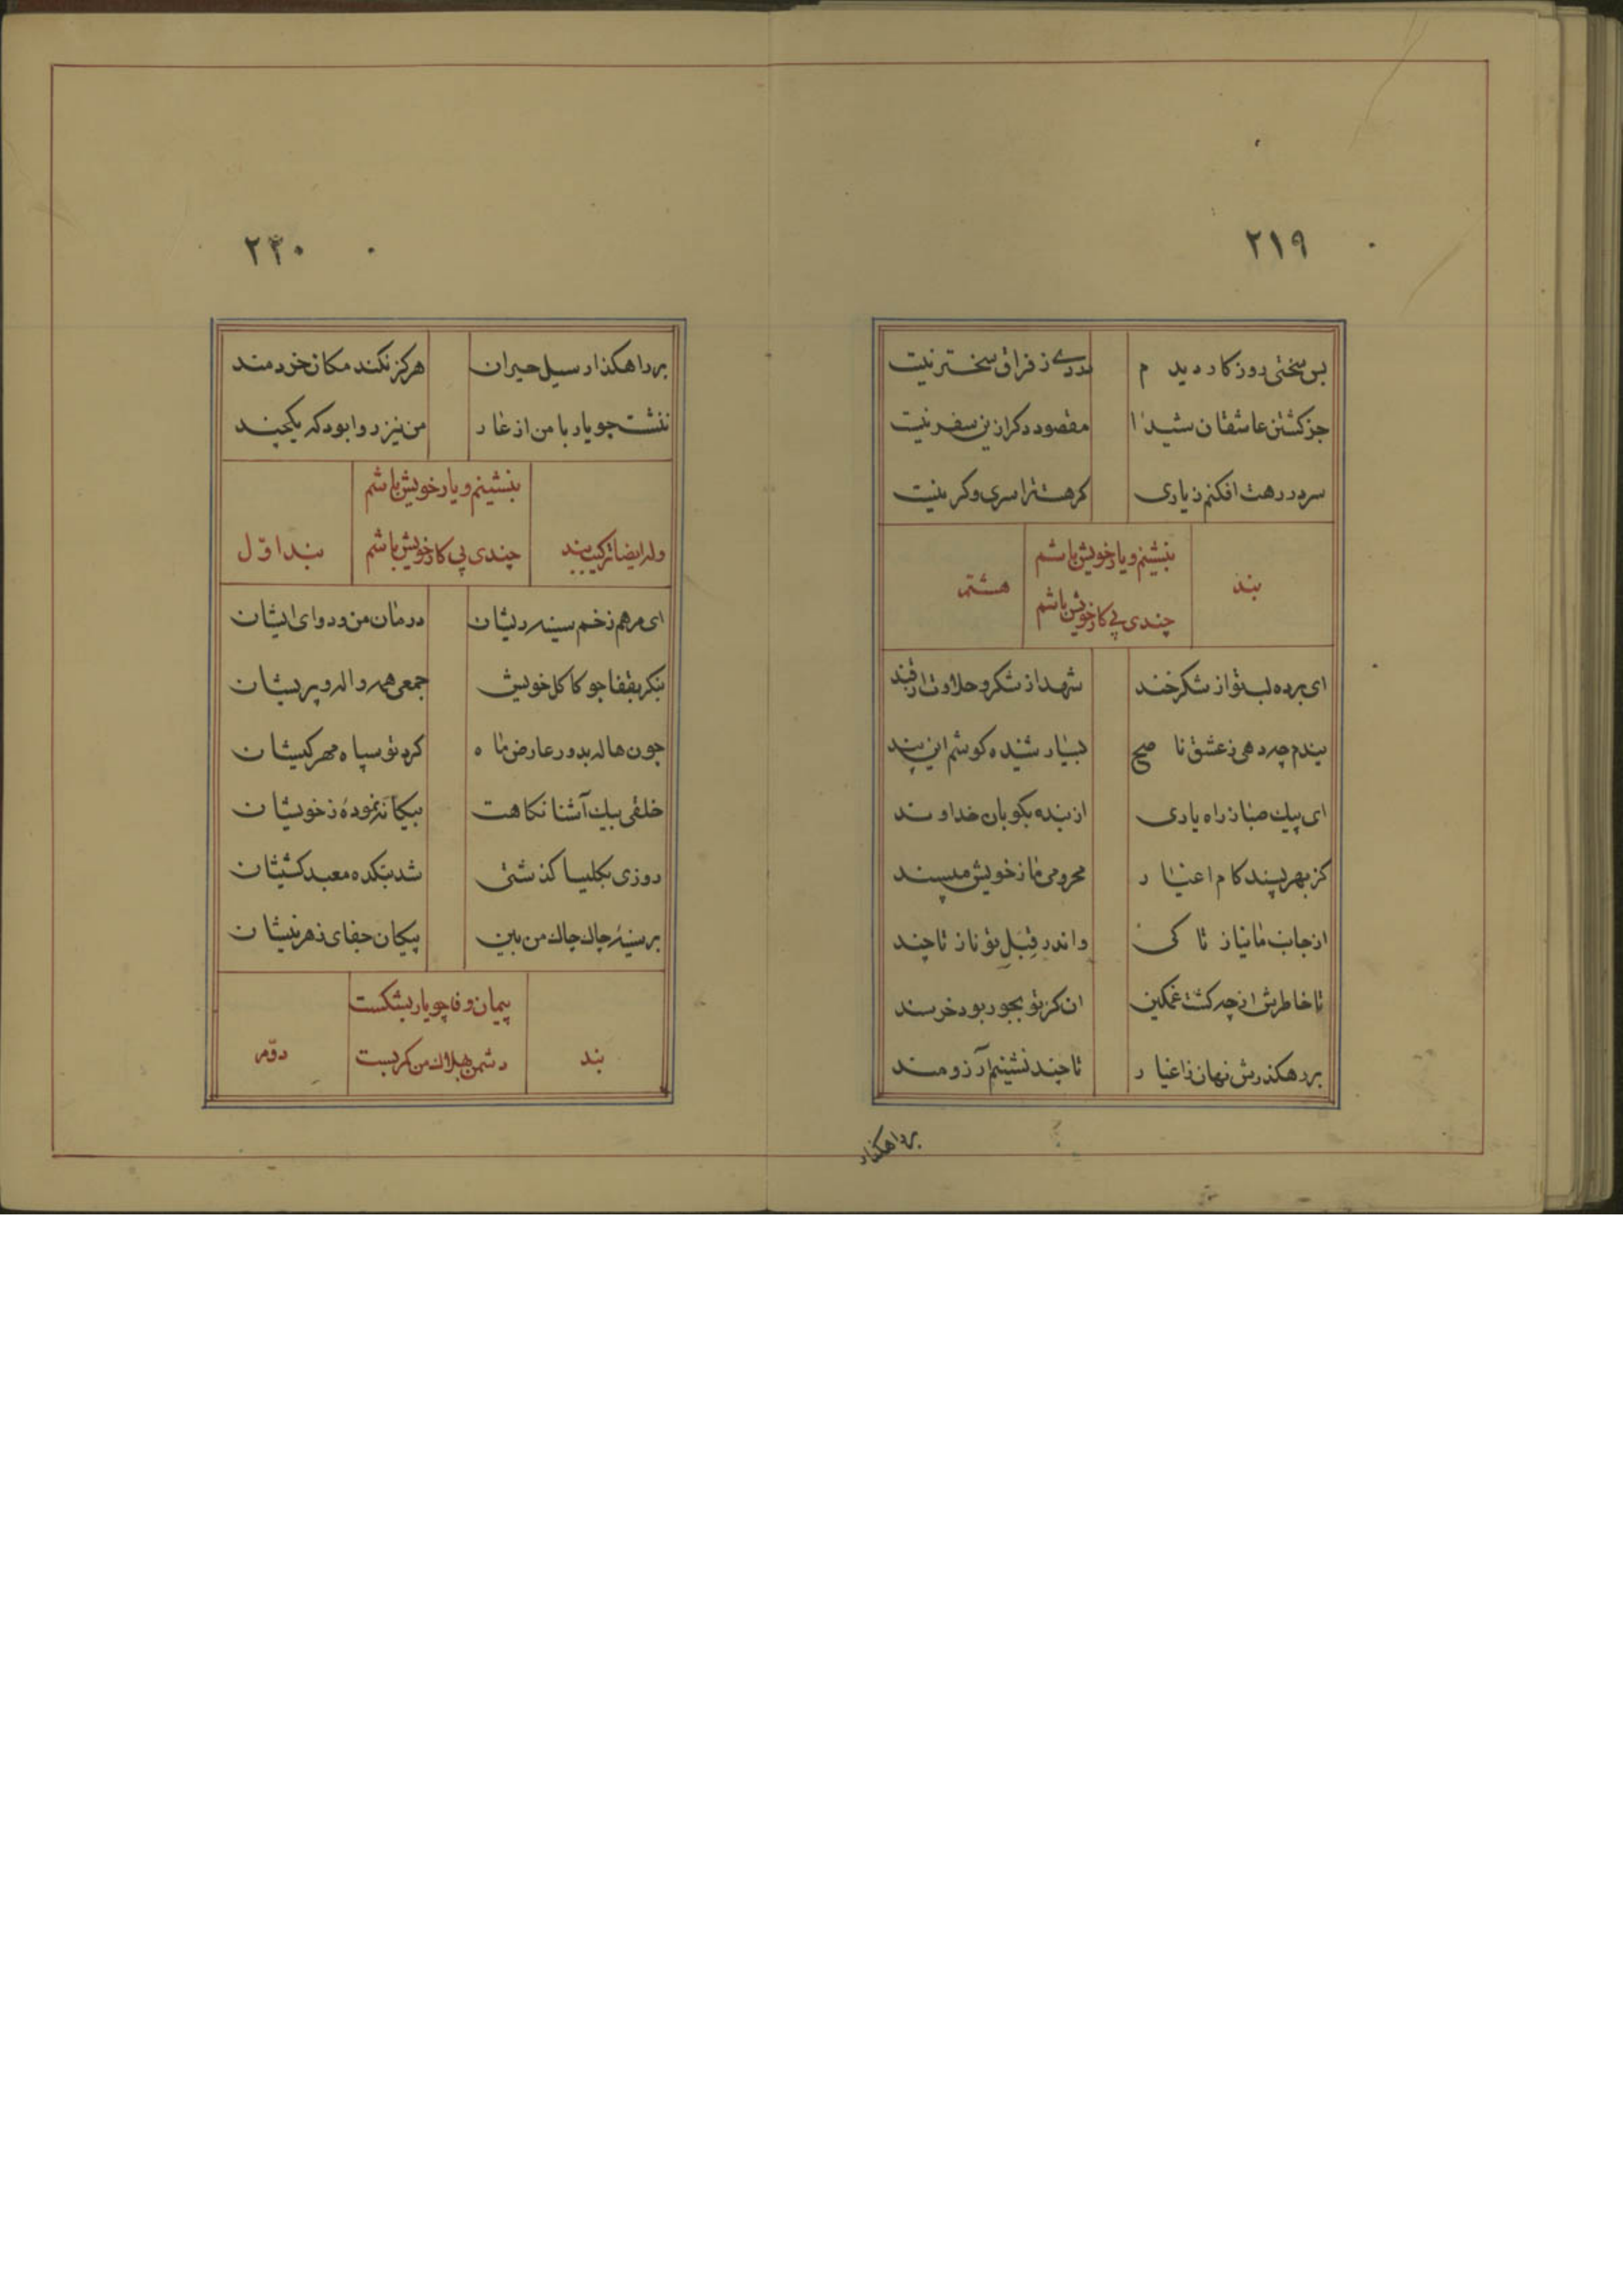 ۲۱۹
بس سختی روزکار دیدم دردے ز فراق سختتر نیست
جز کشتن عاشقان شیدا مقصود دکر ازین سفر نیست
سر در رهت افکنم ز یاری کر هست ترا سری وکر نیست
بند
بنشینم و یار خویش باشم
چندی پی کار خویش باشم
هشتم
ای برده لب تو از شکر خند شهد از شکر و حلاوت از قند
پندم چه دهی ز عشق ناصح بسیار شنیده کوشم این پند
ای پیك صبا ز راه یاری از بنده بکو بان خداوند
کز بهر پسند کام اغیار محرومی ما ز خویش مپسند
از جانب ما نیاز تا کی واندر قِبَلِ تو ناز تا چند
تا خاطرش از چه کشت غمکین ان کز تو بجور بود خرسند
بر رهکذرش نهان ز اغیار تا چند نشینم آرزومند
براهکذار
۲۲۰
براهکذار سیل حیران هرکز نکند مکان خردمند
ننشست جو یار با من از عار من نیز روا بود که یکچند
وله ایضا ترکیب بند
بنشینم و یار خویش باشم
چندی پی کار خویش باشم
بند اوّل
ای مرهم زخم سینه ریشان درمان من و دوای ایشان
بنکر بقفا جو کاکل خویش جمعی همه واله و پریشان
جون هاله بدور عارض ماه کرد تو سپاه مهر کیشان
خلقی بیك آشنا نکاهت بیکانه نمودهٔ ز خویشان
روزی بکلیسا کذشتی شد بتکده معبد کشیشان
بر سینهٔ چاك چاك من بین پیکان جفای زهر نیشان
بند
پیمان وفا چو یار بشکست
دشمن بهلاك من کمر بست
دوّم